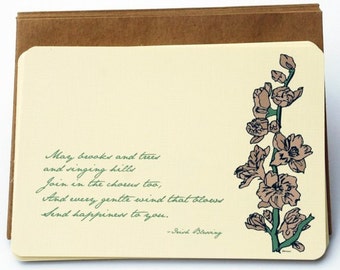 May brooks and trees
and singing hills
Join in the chorus too,
And every gentle wind that blows
Send happiness to you.
~Irish Blessing